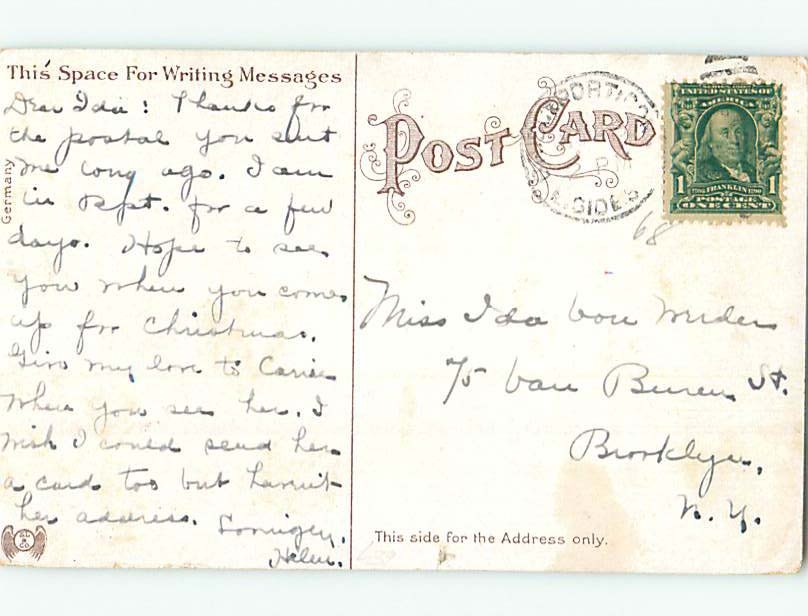 This Space For Writing Messages
Dear Ida: Thanks for
the postal you sent
me long ago. I am
in Bpt. for a few
days. Hope to see
you when you come
up for Christmas.
Give my love to Carrie
when you see her. I
wish I could send her
a card too but havn't
her address. Lovingly,
Helen.
Germany
POST CARD
SIDE S
SERIES 1902
UNITED STATES OF
AMERICA
1 1706 FRANKLIN 1790 1
POSTAGE
ONE CENT
68
Miss Ida von
75 Van Buren St.
Brooklyn,
N. Y.
This side for the Address only.